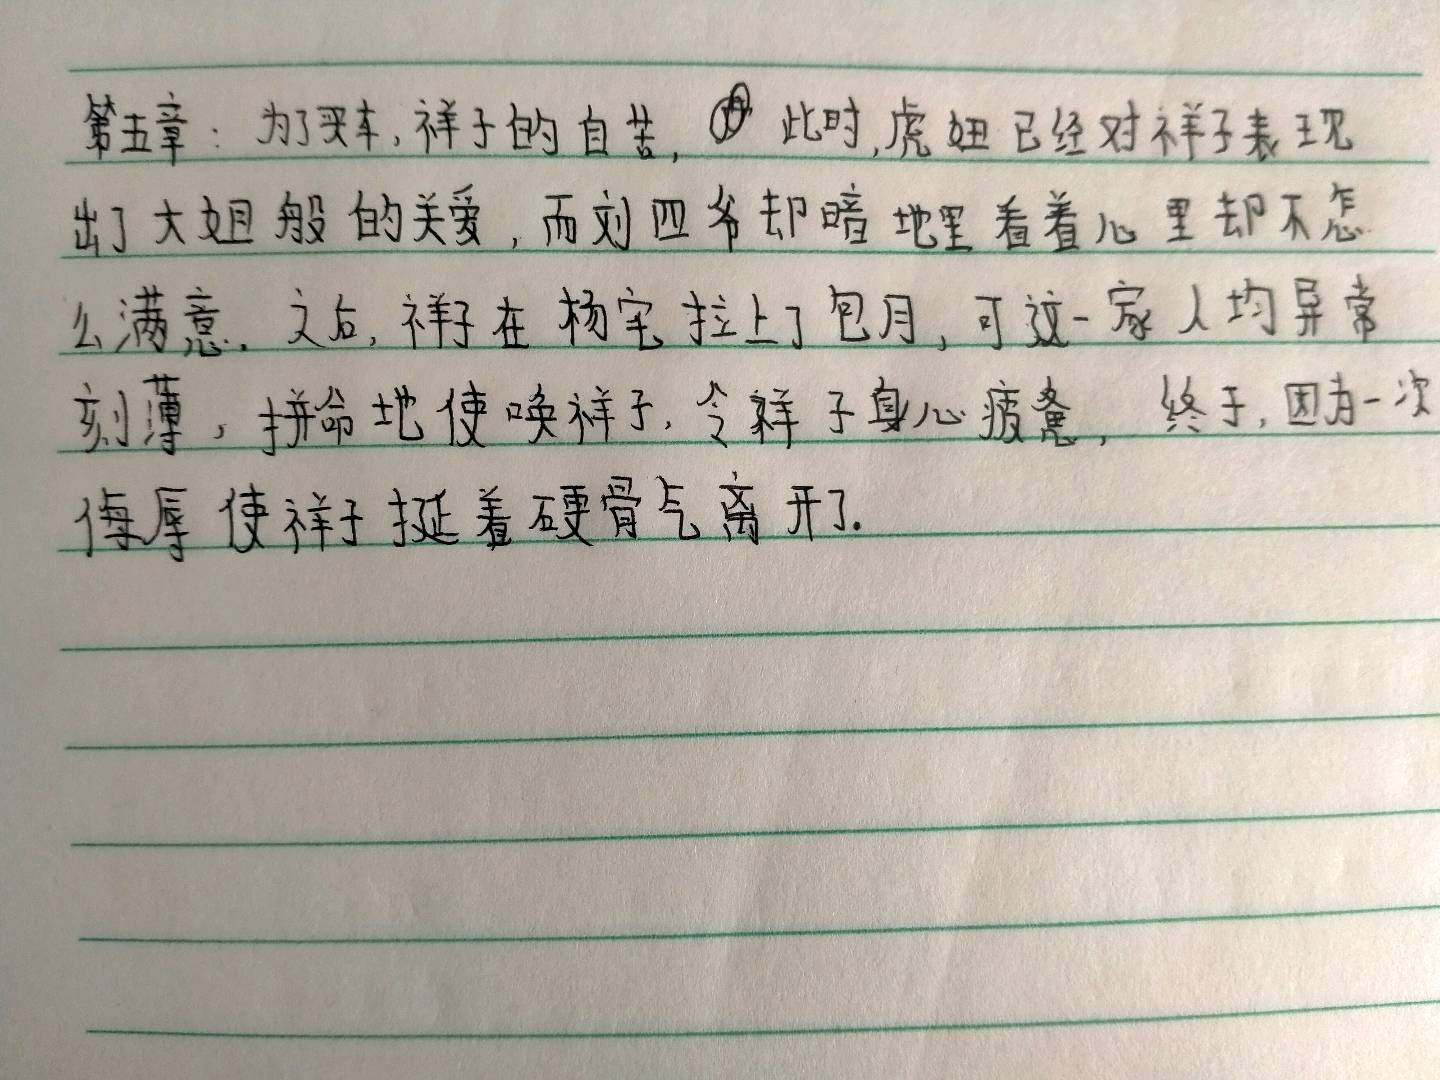 第五章：为了买车，祥子的自苦，此时，虎妞已经对祥子表现
出了大姐般的关爱，而刘四爷却暗地里看着心里却不怎
么满意。之后，祥子在杨宅拉上了包月，可这一家人均异常
刻薄，拼命地使唤祥子，令祥子身心疲惫，终于，因为一次
侮辱使祥子挺着硬骨气离开了.